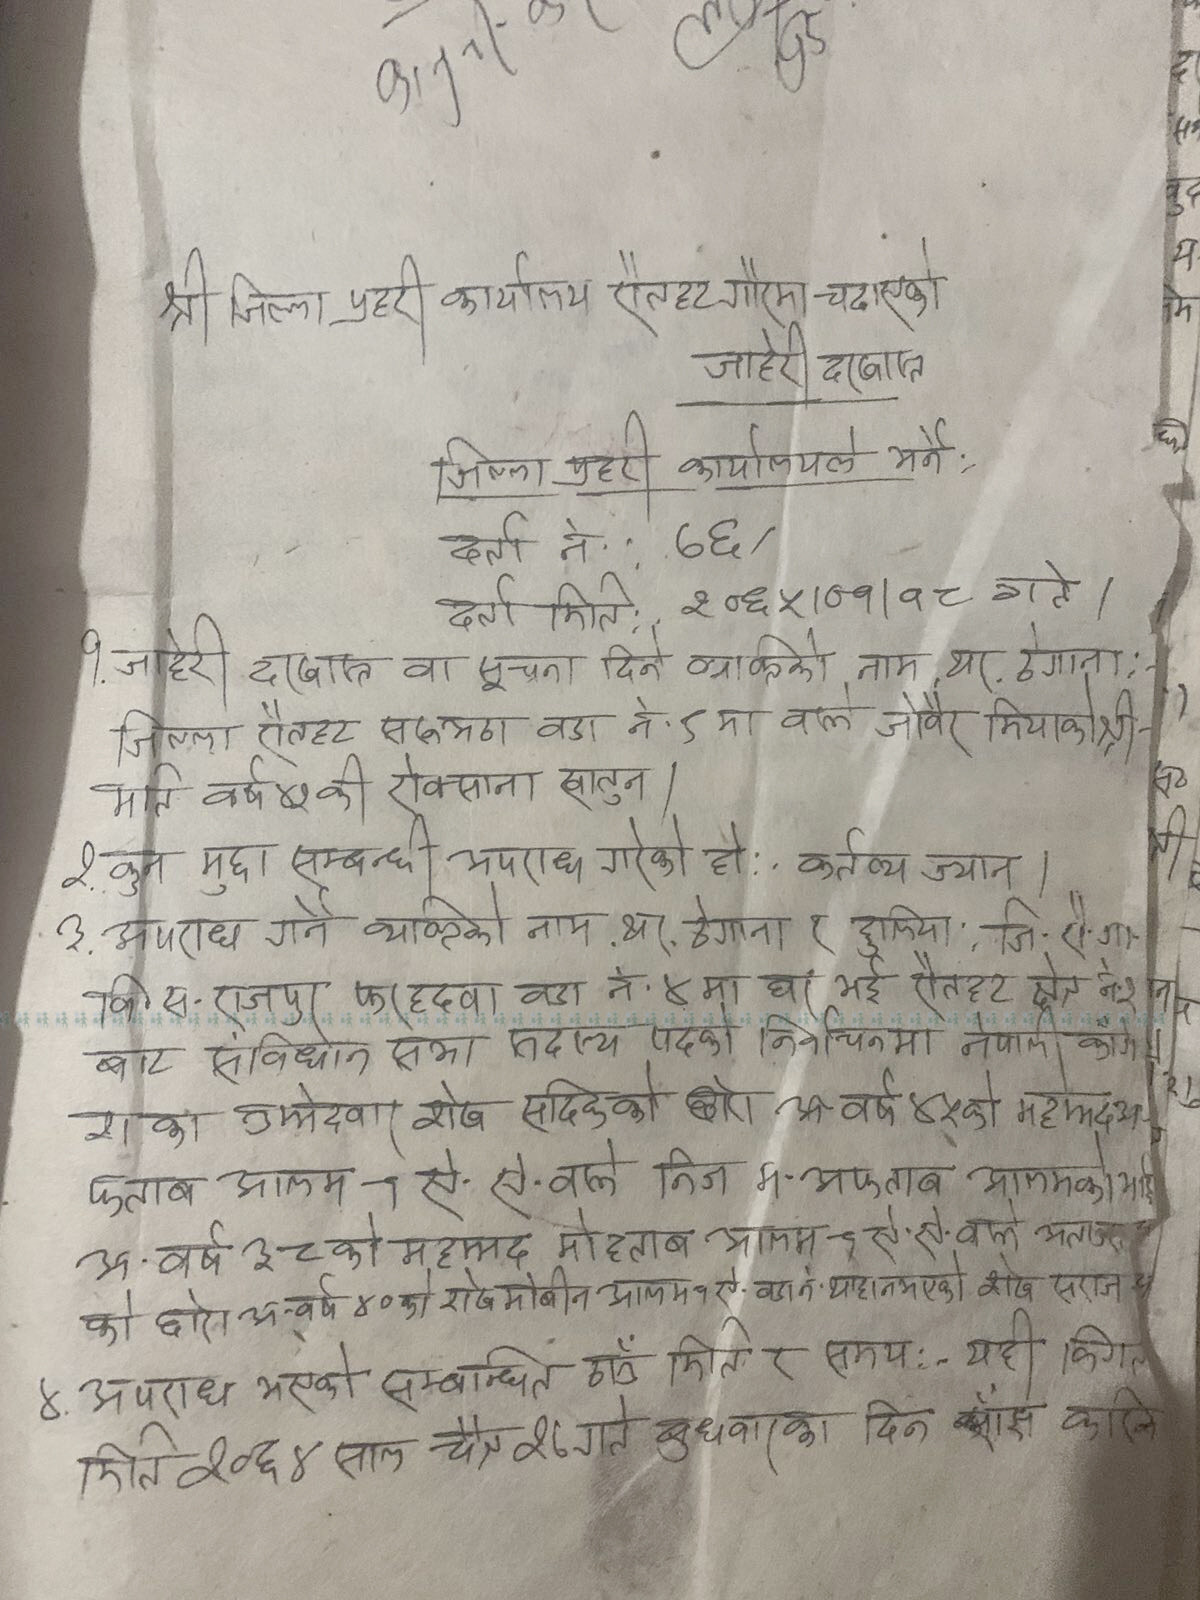 कानुनी
श्री जिल्ला प्रहरी कार्यालय रौतहट गौरमा चढाएको
जाहेरी दरखास्त
जिल्ला प्रहरी कार्यालयले भर्ने:-
दर्ता नं.:
दर्ता मिति:. २०६५।०१।१८ गते।
१. जाहेरी दरखास्त वा सूचना दिने व्यक्तिको नाम, थर, ठेगाना:-
जिल्ला रौतहट वडा नं. ८ मा बस्ने जोवैर मियाको श्री-
मति वर्ष की रोक्साना खातुन।
२. कुन मुद्दा सम्बन्धी अपराध गरेको हो:- कर्तव्य ज्यान।
३. अपराध गर्ने व्यक्तिको नाम, थर, ठेगाना र हुलिया:. जि. रौ. गा.
वि.स. राजपुर फरहदवा वडा नं. ४ मा घर भई रौतहट क्षेत्र नं. २
बाट संविधान सभा सदस्य पदको निर्वाचनमा नेपाली काँग्रे
उम्मेदवार शेख सदिकको छोरा अ. वर्ष ४५ को महम्मद अ-
फताब आलम -१ ऐ. ऐ. बस्ने निज म. अफताब आलमको भाई
अ. वर्ष ३८ को महम्मद मोहताब आलम -१ ऐ. ऐ. बस्ने
को छोरा अ. वर्ष ४० को शेख मोबीन आलम १ ऐ. वडा नं. शेख सराज
४. अपराध भएको सम्बन्धित ठाउँ मिति र समय:- यही विगत
मिति २०६४ साल चैत्र २८ गते बुधवारका दिन साँझ करिब